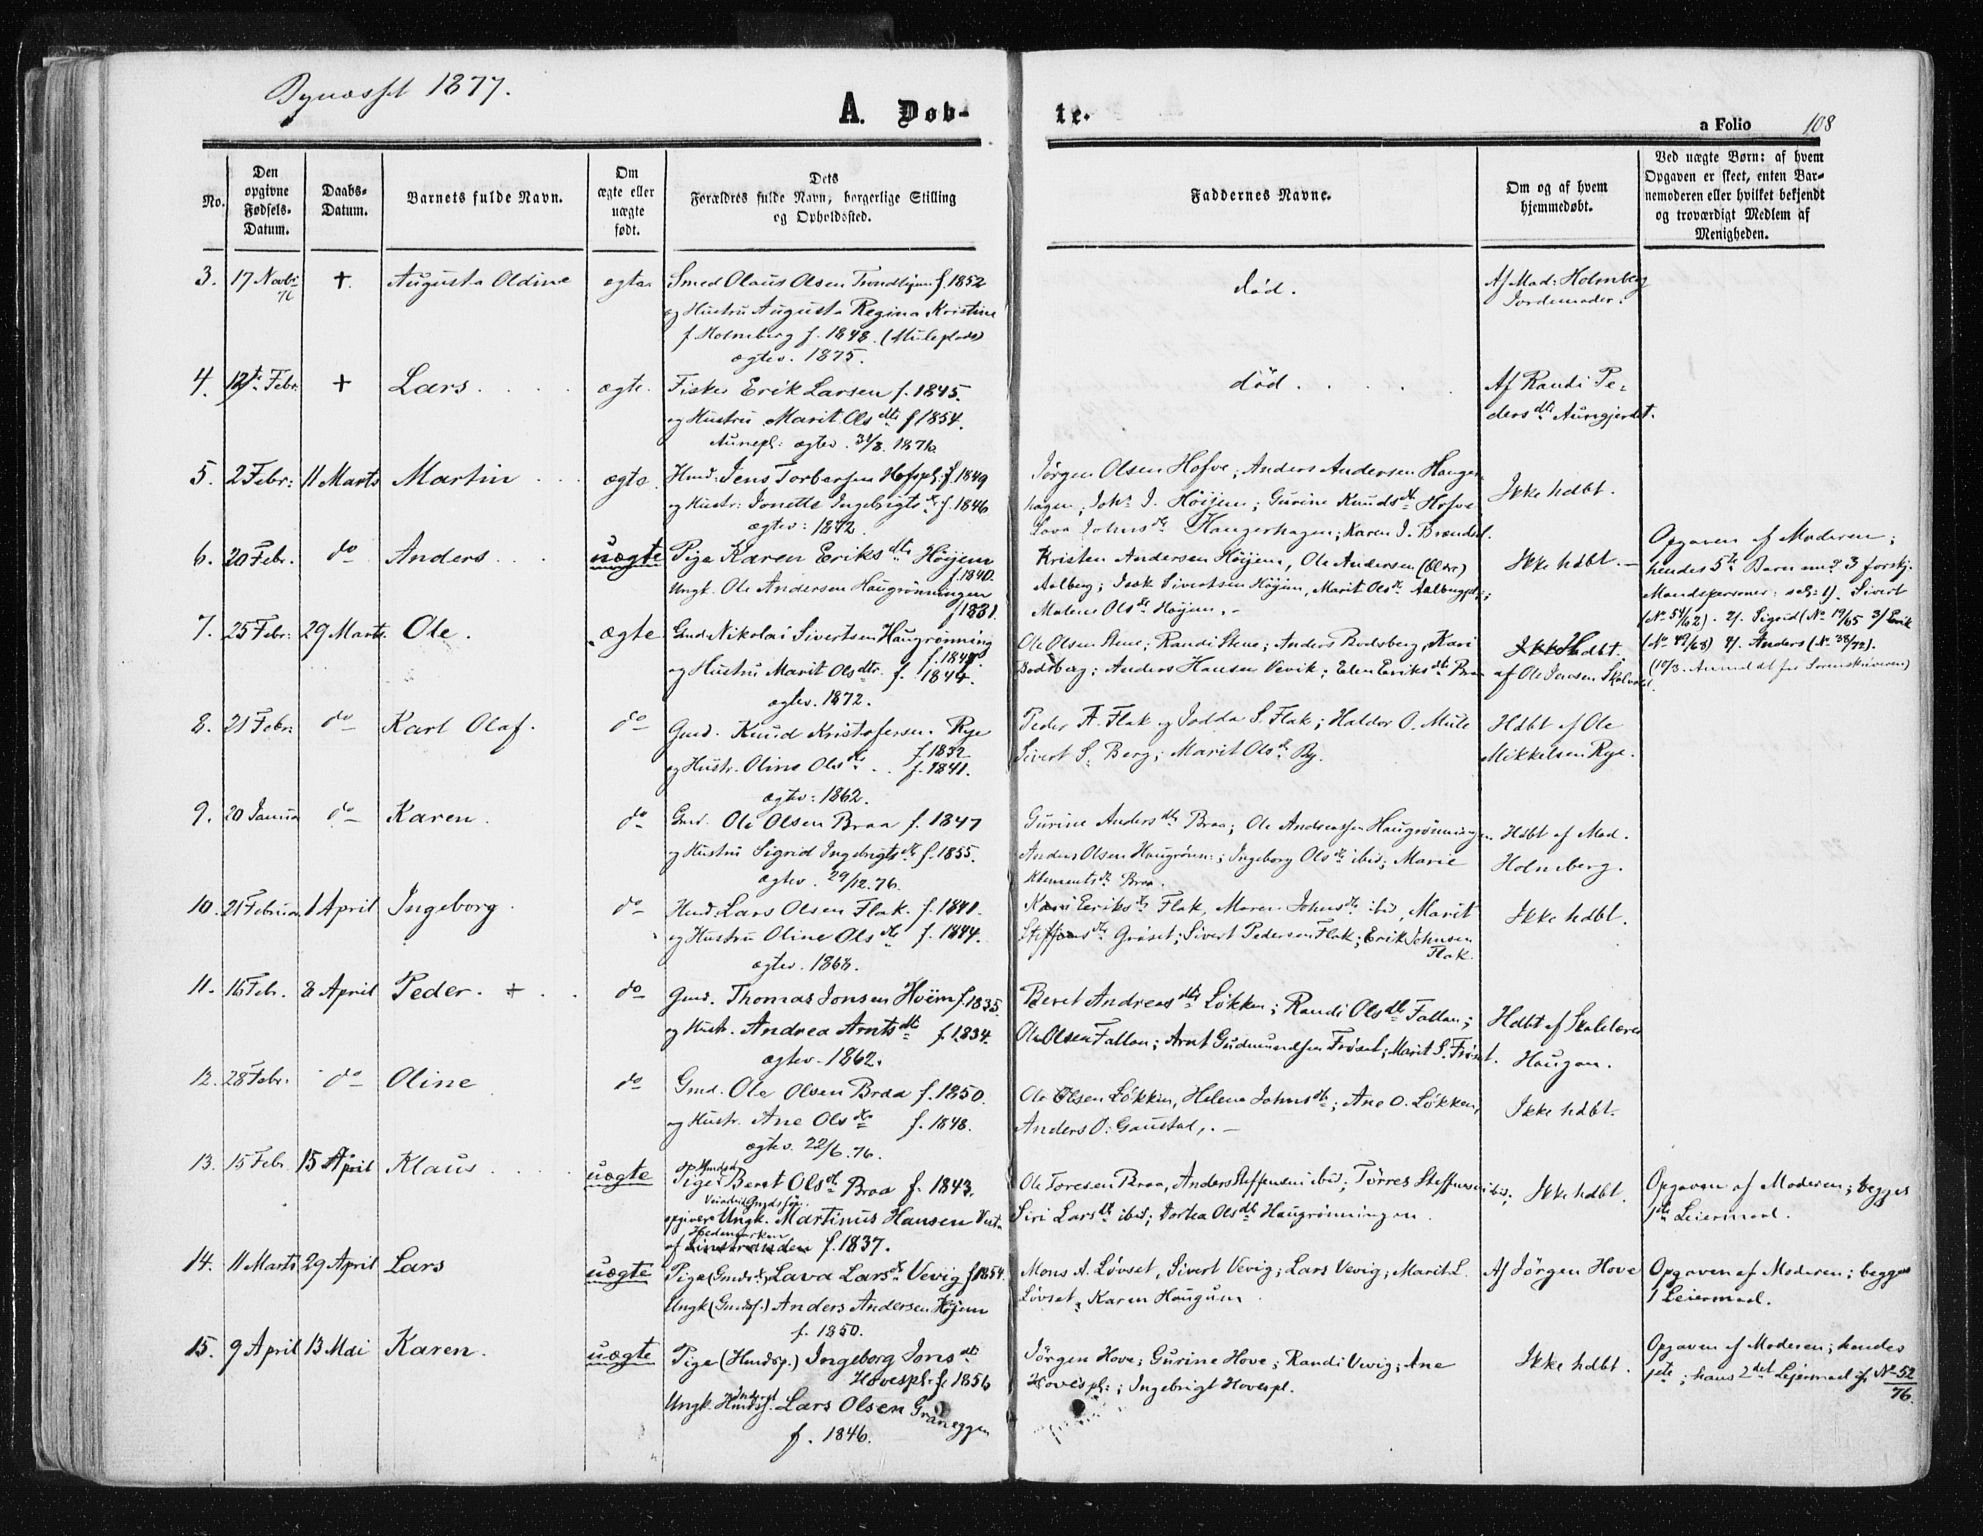 Bynæsset 1877.
A. Døb-
te.
a Folio 108
No.
Den opgivne Fødsels-Datum.
Daabs-Datum.
Barnets fulde Navn.
Om ægte eller uægte født.
Dets Forældres fulde Navn, borgerlige Stilling og Opholdssted.
Faddernes Navne.
Om og af hvem hjemmedøbt.
Ved uægte Børn: af hvem Opgaven er skeet, enten Barnemoderen eller hvilket bekjendt og troværdigt Medlem af Menigheden.
3. 17 Novbr 76 + Augusta Oldine ægte
Smed Olaus Olsen Trondhjem f. 1852
og Hustru Augusta Regina Kristine
f Holmberg f. 1848.
ægtev. 1875.
død.
Af Mad: Holmberg
Jordemoder.
4. 12te Febr. + Lars ægte.
Fisker Erik Larsen f. 1845.
og Hustru Marit Olsdtr f 1854.
Aunepl: ægtev. 1876.
død
Af Randi Pe-
dersdtr Aungjerdet.
5. 2 Febr: 11 Marts Martin ægte.
Husmd. Jens Torbersen Hofspl: f. 1849
og Hustr: Jonette Ingebrigtsdr f. 1846
ægtev: 1872.
Jørgen Olsen Hofve; Anders Andersen Hanger-
hagen; Johs J. Høijem; Gurine Knudsdtr Hofve
Lava Johnsdr Hangerhagen; Karen J. Brendsl.
Ikke hdbt.
6. 20 Febr. do Anders uægte
Pige Karen Eriksdtr Høijem
f. 1840.
Ungk. Ole Andersen Haugrønningen
f 1831.
Kristen Andersen Høijem, Ole Andersen
Aalberg; Isak Sivertsen Høijem, Marit Olsdr
Malene Olsdr Høijem.
Ikke hdbt.
Opgaven af Moderen;
hendes 5te Barn med 3 forskj.
Mandspersoner: 1). Sivert
(No 54/62). 2). Sigrid (No 19/65 3/ Erik
(No 49/68) 4). Anders (No 38/72).
7. 25 Febr: 29 Marts Ole. ægte
Gmd Nikolai Sivertsen Haugrønning
og Hustru Marit Olsdtr. f. 1844.
ægtev. 1872.
Ole Olsen Stene; Randi Stene; Anders Bodsberg, Kari
Bodsberg; Anders Hansen Vevik; Elen Eriksdtr Braa
hdbt.
af Ole Jensen
8. 21 Febr: do Karl Olaf. do
Gmd. Knud Kristofersen Rye
f 1832
og Hustr. Oline Olsdr f. 1841.
ægtev: 1862.
Peder A. Flak og Jodda S. Flak; Haldor O. Mule
Sivert S. Berg; Marit Olsdr By.
Hdbt af Ole
Mikkelsen Rye.
9. 20 Januar do Karen. do
Gmd. Ole Olsen Braa f. 1847
og Hustru Sigrid Ingebrigtsdr f. 1855.
ægtev. 29/12.76.
Gurine Andersdtr Braa; Ole Andreassen Haugrønningen.
Anders Olsen Haugrønn:; Ingeborg Olsdr ibid; Marie
Klementsdr Braa.
Hdbt af Mad.
Holmberg.
10. 21 Februar 1 April Ingeborg. do
Husmd: Lars Olsen Flak. f. 1841.
og Hustru Oline Olsdr f. 1844.
ægtev. 1868.
Kari Eriksdr Flak, Maren Johnsdr ibid, Marit
Steffensdr Grøset; Sivert Pedersen Flak; Erik Johnsen
Flak.
Ikke hdbt.
11. 16 Febr. 8 April Peder. + do
Gmd. Thomas Jonsen Høiem f. 1835.
og Hustr. Andrea Arntsdtr f. 1834.
ægtev. 1862.
Beret Andreasdtr Løkken; Randi Olsdtr Fallan;
Ole Olsen Fallan; Arnt Gudmundsen Frøset; Marit S. Frøset.
Hdbt af Skolelærer
Haugan.
12. 28 Febr. do Oline do
Gmd. Ole Olsen Braa f. 1850.
og Hustr. Ane Olsdr f. 1848.
ægtev. 22/6.76.
Ole Olsen Løkken, Helena Johnsdtr; Ane O. Løkken,
Anders O. Gaustad,.
Ikke hdbt.
13. 15 Febr. 15 April Klaus uægte
Pige Beret Olsdr Braa f. 1843.
opgiver Ungk. Martinus Hansen
Hedemarken
f. 1837.
Ole Toresen Braa, Anders Steffensen ibid; Tørres Steffensen ibid;
Siri Larsdtr ibid; Dortea Olsdtr Haugrønningen.
Ikke hdbt.
Opgaven af Moderen; begges
1ste Leiermaal.
14. 11 Marts 29 April Lars uægte
Pige (Gmdsd.) Lava Larsdr Vevig f 1854.
Ungk (Gmdss.) Anders Andersen Høijem
f. 1850.
Mons A. Løvset, Sivert Vevig; Lars Vevig; Marit L.
Løvset, Karen Haugum.
Af Jørgen Hove
Opgaven af Moderen; begges
1 Leiermaal.
15. 9 April 13 Mai Karen. uægte
Pige (Husmdsp.) Ingeborg Jonsdtr
Hovespl. f. 1856
Ungk. Lars Olsen Graneggen
f. 1846.
Jørgen Hove; Gurine Hove; Randi Vevig; Ane
Hovespl:; Ingebrigt Hovespl.
Ikke hdbt.
Opgaven af Moderen; hendes
1ste; hans 2det Lejermaal jf No 52/76.